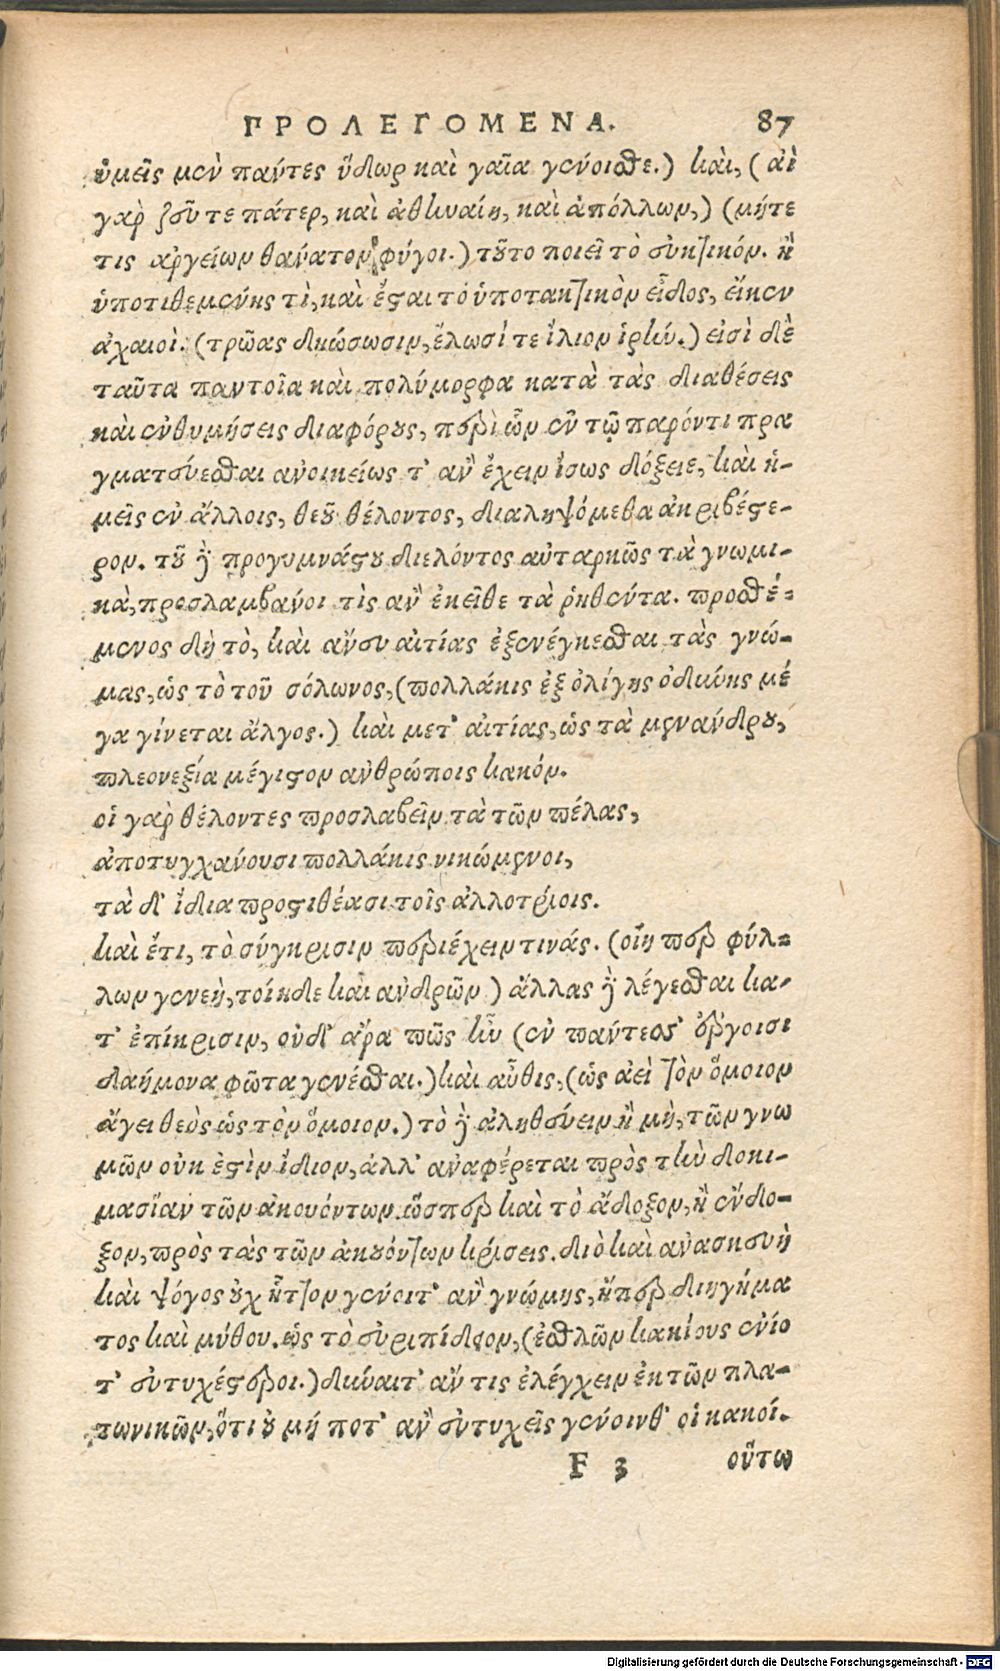 ΠΡΟΛΕΓΟΜΕΝΑ. 87
ὑμεῖς μὲν πάντες ὕδωρ καὶ γαῖα γένοισθε.) καὶ, (αἲ
γὰρ ζεῦ τε πάτερ, καὶ ἀθηναίη, καὶ ἀπόλλων,) (μήτε
τις ἀργείων θάνατον φύγοι.) τοῦτο ποιεῖ τὸ εὐκτικόν. ἢ
ὑποτιθεμένης τὶ, καὶ ἔσαι τὸ ὑποτακτικὸν εἶδος, εἴκεν
ἀχαιοὶ. (τρῶας δηώσωσιν, ἕλωσί τε ἴλιον ἱρήν.) εἰσὶ δὲ
ταῦτα παντοῖα καὶ πολύμορφα κατὰ τὰς διαθέσεις
καὶ ἐνθυμήσεις διαφόρους, περὶ ὧν ἐν τῷ παρόντι πρα
γματεύεσθαι ἀνοικείως τ' ἂν ἔχειν ἴσως δόξειε, καὶ ἡ-
μεῖς ἐν ἄλλοις, θεοῦ θέλοντος, διαληψόμεθα ἀκριβέστε-
ρον. τοῦ δὲ προγυμνάστου διελόντος αὐταρκῶς τὰ γνωμι-
κὰ, προσλαμβάνοι τὶς ἂν ἐκεῖθε τὰ ῥηθέντα. προσθέ-
μενος δὴ τὸ, καὶ ἄνευ αἰτίας ἐξενέγκεσθαι τὰς γνώ-
μας, ὡς τὸ τοῦ σόλωνος, (πολλάκις ἐξ ὀλίγης ὀδύνης μέ
γα γίνεται ἄλγος.) καὶ μετ' αἰτίας, ὡς τὰ μενάνδρου,
πλεονεξία μέγιστον ἀνθρώποις κακόν.
οἱ γὰρ θέλοντες προσλαβεῖν τὰ τῶν πέλας,
ἀποτυγχάνουσι πολλάκις νικώμενοι,
τὰ δ' ἴδια προστιθέασι τοῖς ἀλλοτρίοις.
καὶ ἔτι, τὸ σύγκρισιν περιέχειν τινάς. (οἵη περ φύλ-
λων γενεὴ, τοίηδε καὶ ἀνδρῶν) ἄλλας δὲ λέγεσθαι κα-
τ' ἐπίκρισιν, οὐδ' ἄρα πῶς ἦν (ἐν πάντεσ' ἔργοισι
δαήμονα φῶτα γενέσθαι.) καὶ αὖθις, (ὡς ἀεὶ τὸν ὅμοιον
ἄγει θεὸς ὡς τὸν ὅμοιον.) τὸ δὲ ἀληθεύειν ἢ μὴ, τῶν γνω
μῶν οὐκ ἐστὶν ἴδιον, ἀλλ' ἀναφέρεται πρὸς τὴν δοκι-
μασίαν τῶν ἀκουόντων. ὥσπερ καὶ τὸ ἄδοξον, ἢ ἔνδο-
ξον, πρὸς τὰς τῶν ἀκουόντων κρίσεις. διὸ καὶ ἀνασκευὴ
καὶ ψόγος οὐχ ἧττον γένοιτ' ἂν γνώμης, ἤπερ διηγήμα
τος καὶ μύθου. ὡς τὸ εὐριπίδειον, (ἐσθλῶν κακίους ἐνίο
τ' εὐτυχέστεροι.) δύναιτ' ἄν τις ἐλέγχειν ἐκ τῶν πλα-
τωνικῶν, ὅτι οὐ μή ποτ' ἂν εὐτυχεῖς γένοινθ' οἱ κακοί.
F 3 οὕτω
Digitalisierung gefördert durch die Deutsche Forschungsgemeinschaft - DFG